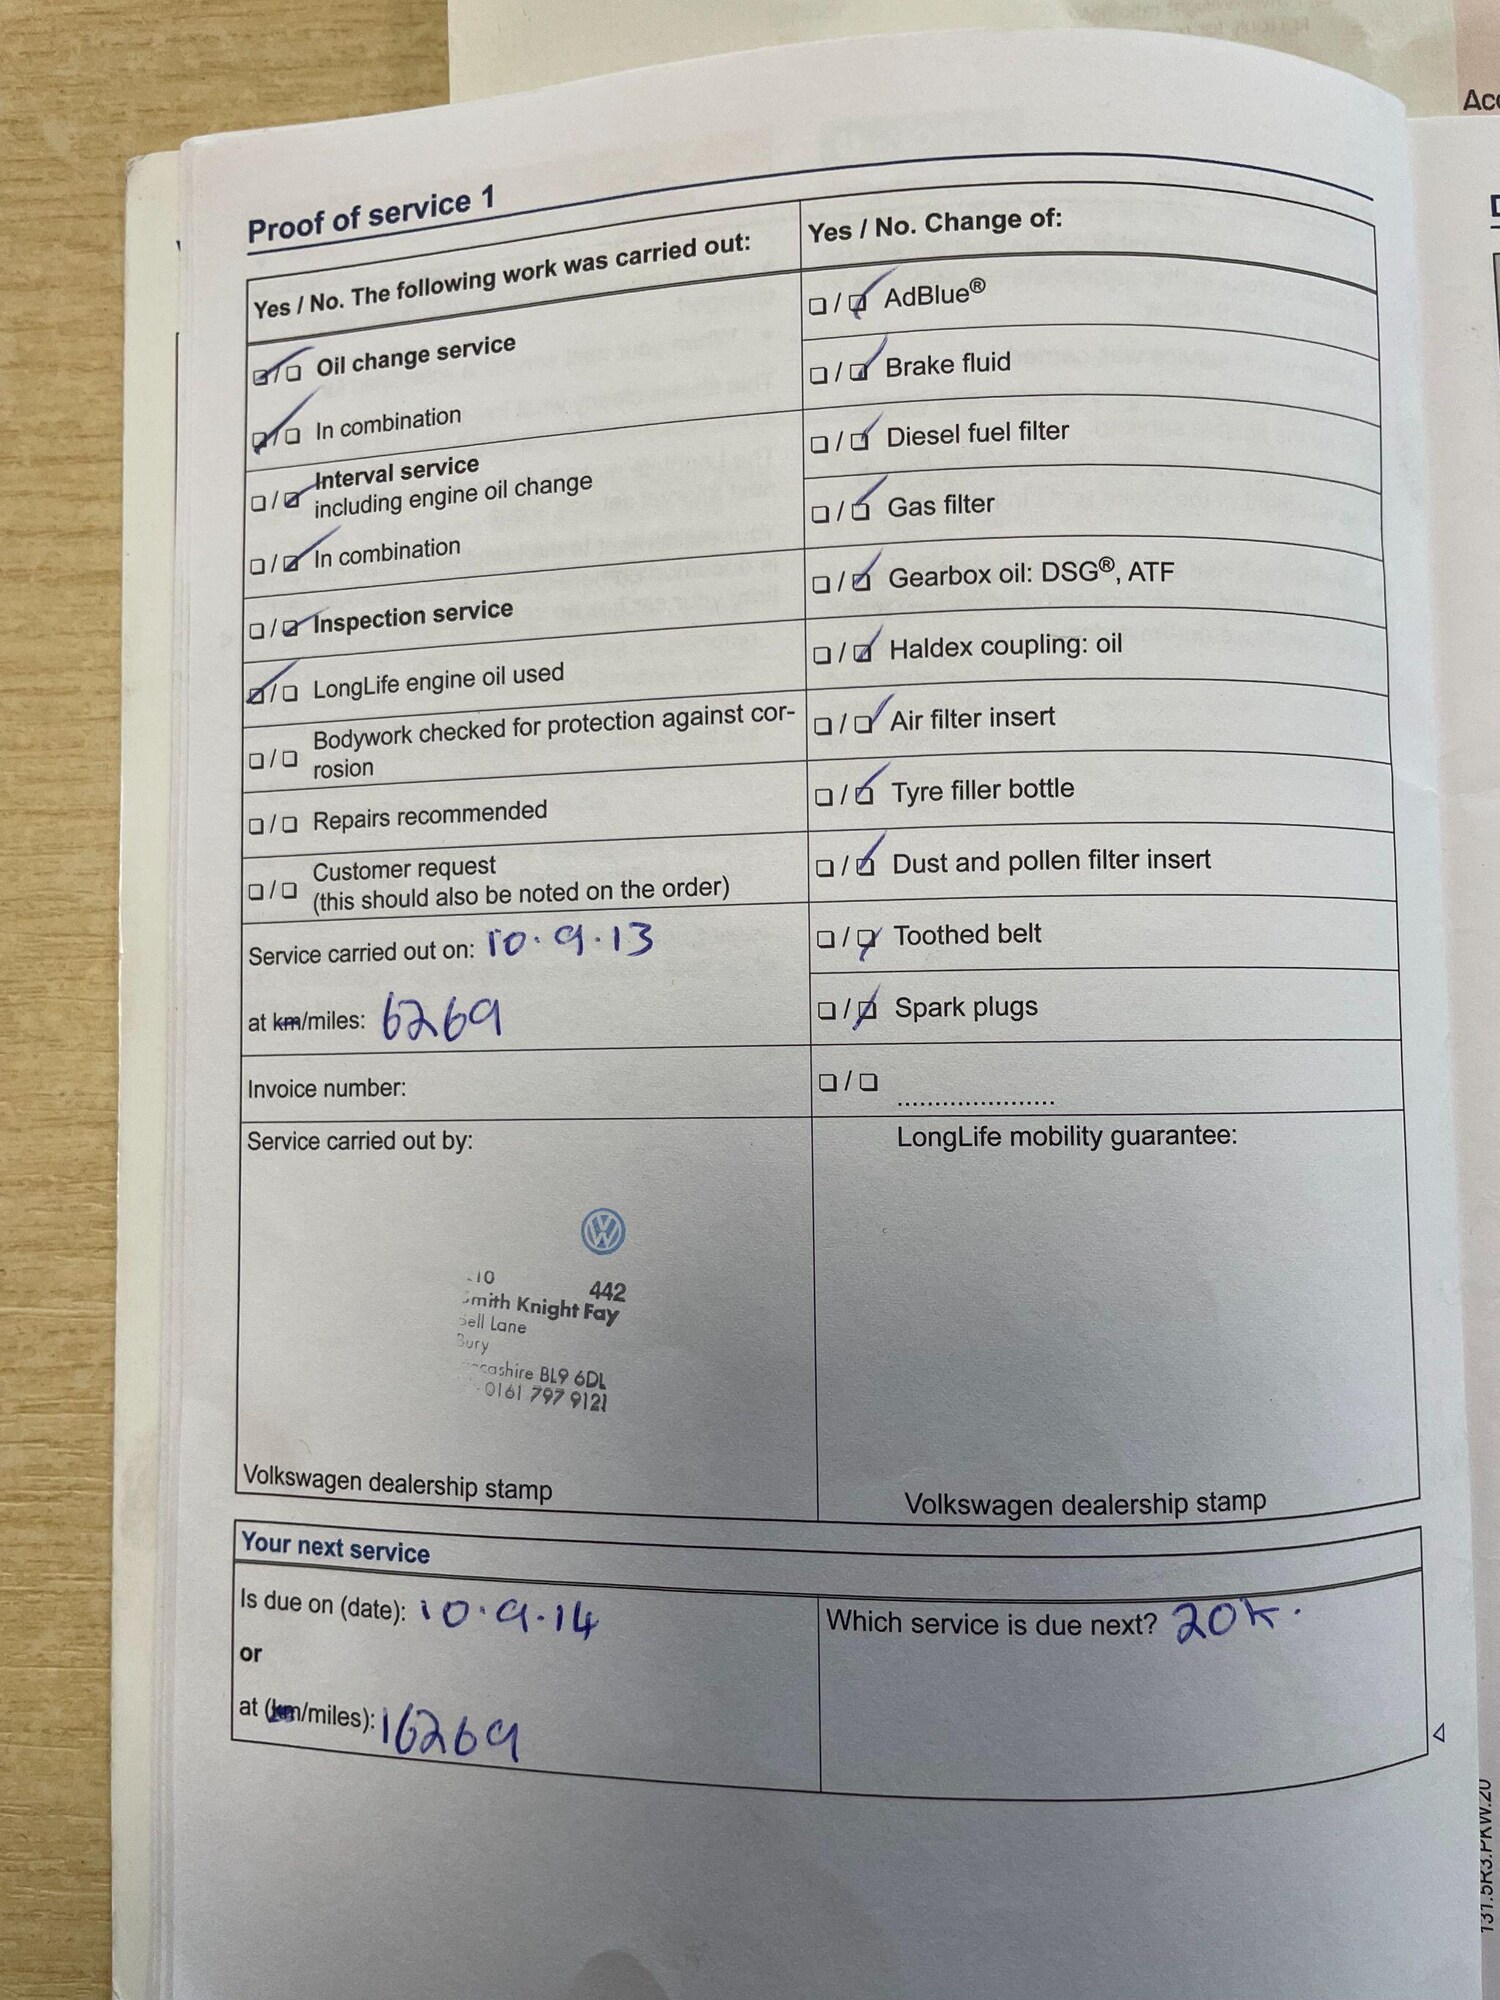 Acc
Proof of service 1
Yes / No. The following work was carried out:
☑ / ☐ Oil change service
☑ / ☐ In combination
☐ / ☑ Interval service
including engine oil change
☐ / ☑ In combination
☐ / ☑ Inspection service
☑ / ☐ LongLife engine oil used
☐ / ☐ Bodywork checked for protection against cor-
rosion
☐ / ☐ Repairs recommended
☐ / ☐ Customer request
(this should also be noted on the order)
Service carried out on: 10.9.13
at km/miles: 6269
Invoice number:
Yes / No. Change of:
☐ / ☑ AdBlue®
☐ / ☑ Brake fluid
☐ / ☑ Diesel fuel filter
☐ / ☑ Gas filter
☐ / ☑ Gearbox oil: DSG®, ATF
☐ / ☑ Haldex coupling: oil
☐ / ☑ Air filter insert
☐ / ☑ Tyre filler bottle
☐ / ☑ Dust and pollen filter insert
☐ / ☑ Toothed belt
☐ / ☑ Spark plugs
☐ / ☐ .....................
Service carried out by:
10 442
mith Knight Fay
ell Lane
Bury
cashire BL9 6DL
0161 797 9121
Volkswagen dealership stamp
LongLife mobility guarantee:
Volkswagen dealership stamp
Your next service
Is due on (date): 10.9.14
or
at (km/miles): 16269
Which service is due next? 20K.
131.5R3.PKW.20